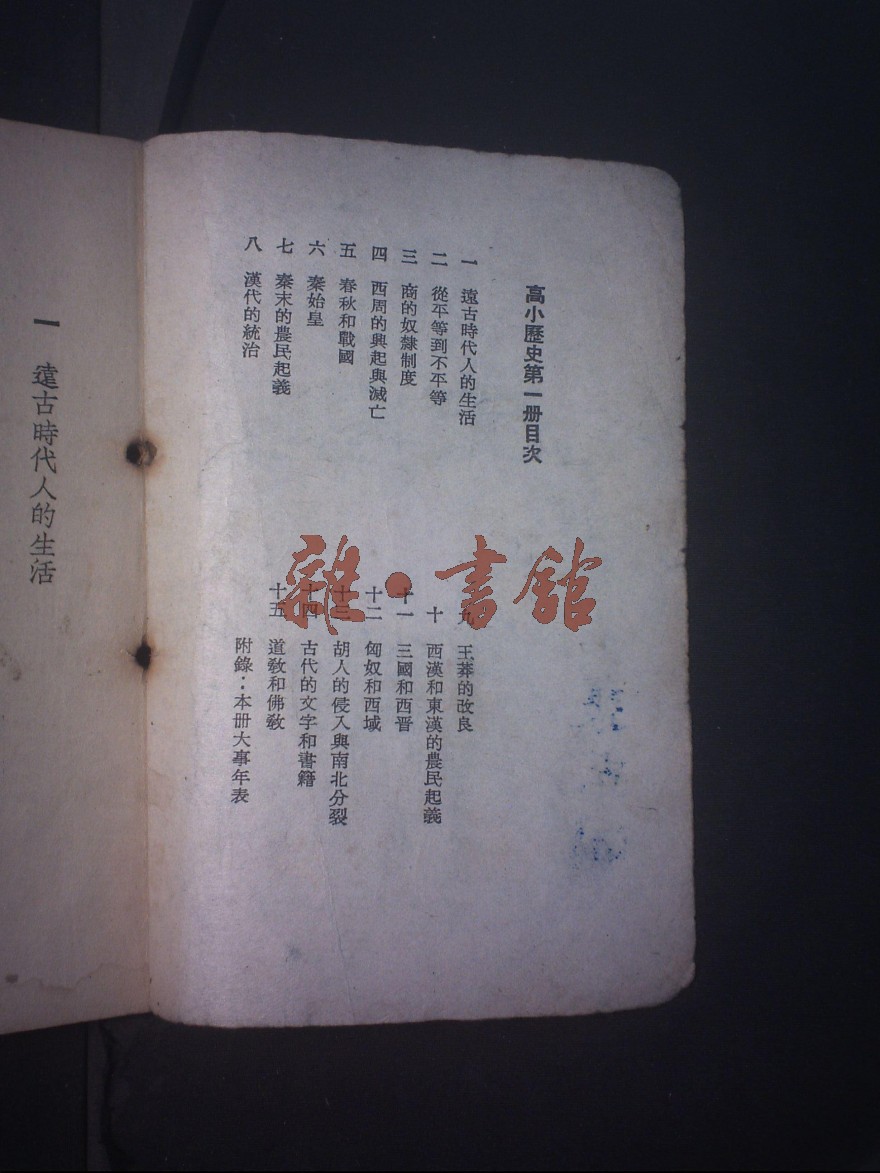 高小歷史第一册目次
一 遠古時代人的生活
二 從平等到不平等
三 商的奴隸制度
四 西周的興起與滅亡
五 春秋和戰國
六 秦始皇
七 秦末的農民起義
八 漢代的統治
九 王莽的改良
十 西漢和東漢的農民起義
十一 三國和西晉
十二 匈奴和西域
十三 胡人的侵入與南北分裂
十四 古代的文字和書籍
十五 道敎和佛敎
附錄：本册大事年表
一 遠古時代人的生活
雜·書館